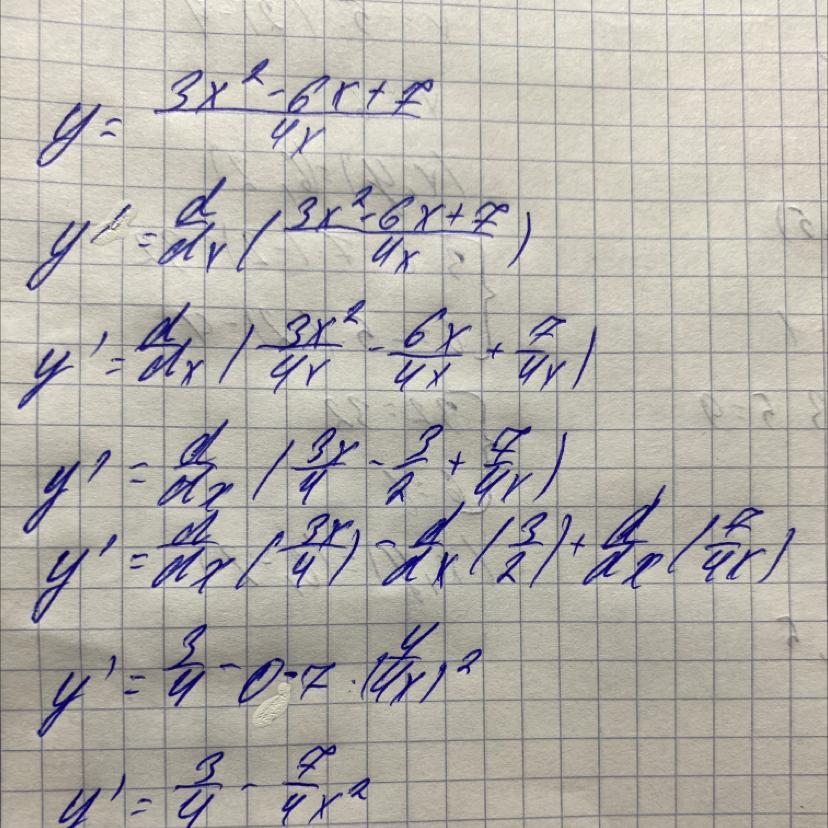 y = (3x² - 6x + 7)/(4x)
y' = d/dx ((3x² - 6x + 7)/(4x))
y' = d/dx (3x²/4x - 6x/4x + 7/4x)
y' = d/dx (3x/4 - 3/2 + 7/4x)
y' = d/dx (3x/4) - d/dx (3/2) + d/dx (7/4x)
y' = 3/4 - 0 - 7 · (4/(4x)²)
y' = 3/4 - 7/4x²